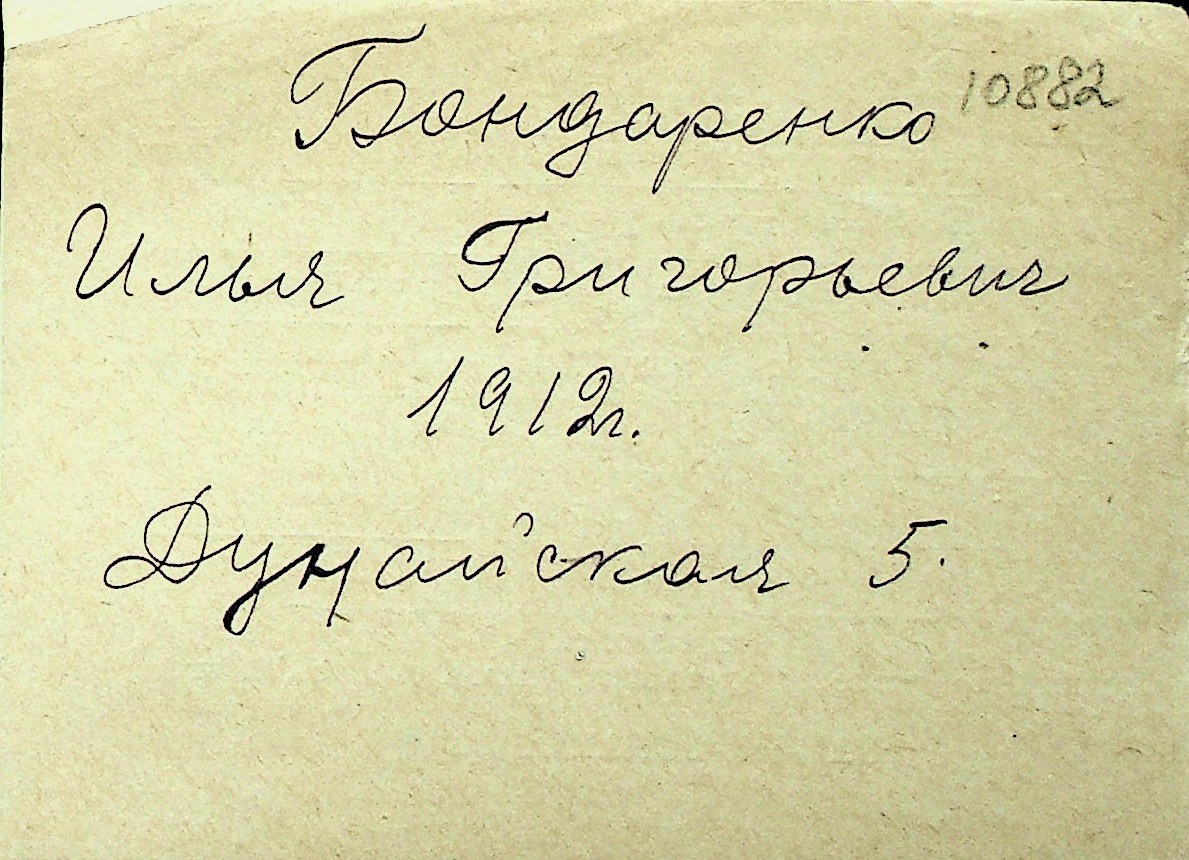 Бондаренко 10882
Илья Григорьевич
1912г.
Дунайская 5.